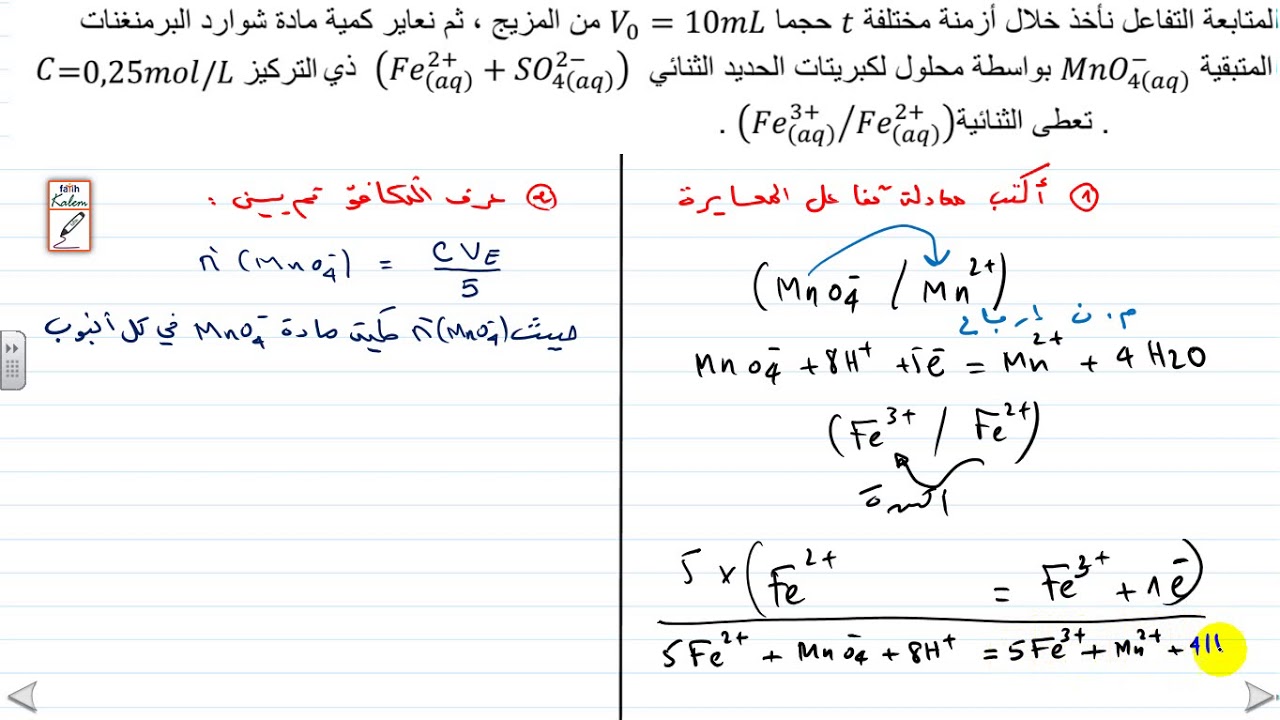 لمتابعة التفاعل نأخذ خلال أزمنة مختلفة t حجما V₀ = 10mL من المزيج ، ثم نعاير كمية مادة شوارد البرمنغنات
المتبقية MnO₄⁻(aq) بواسطة محلول لكبريتات الحديد الثنائي (Fe²⁺(aq) + SO₄²⁻(aq)) ذي التركيز C=0,25mol/L
. تعطى الثنائية (Fe³⁺(aq)/Fe²⁺(aq)) .
① أكتب معادلة تفاعل المعايرة
(MnO₄⁻ / Mn²⁺)
م.ن إرجاع
MnO₄⁻ + 8H⁺ + 5e⁻ = Mn²⁺ + 4H₂O
(Fe³⁺ / Fe²⁺)
أكسدة
5 × (Fe²⁺ = Fe³⁺ + 1e⁻)
5Fe²⁺ + MnO₄⁻ + 8H⁺ = 5Fe³⁺ + Mn²⁺ + 4
② عرف التكافؤ ثم بين :
n(MnO₄⁻) = CV_E / 5
حيث n(MnO₄⁻) كمية مادة MnO₄⁻ في كل أنبوب
fatih
Kalem